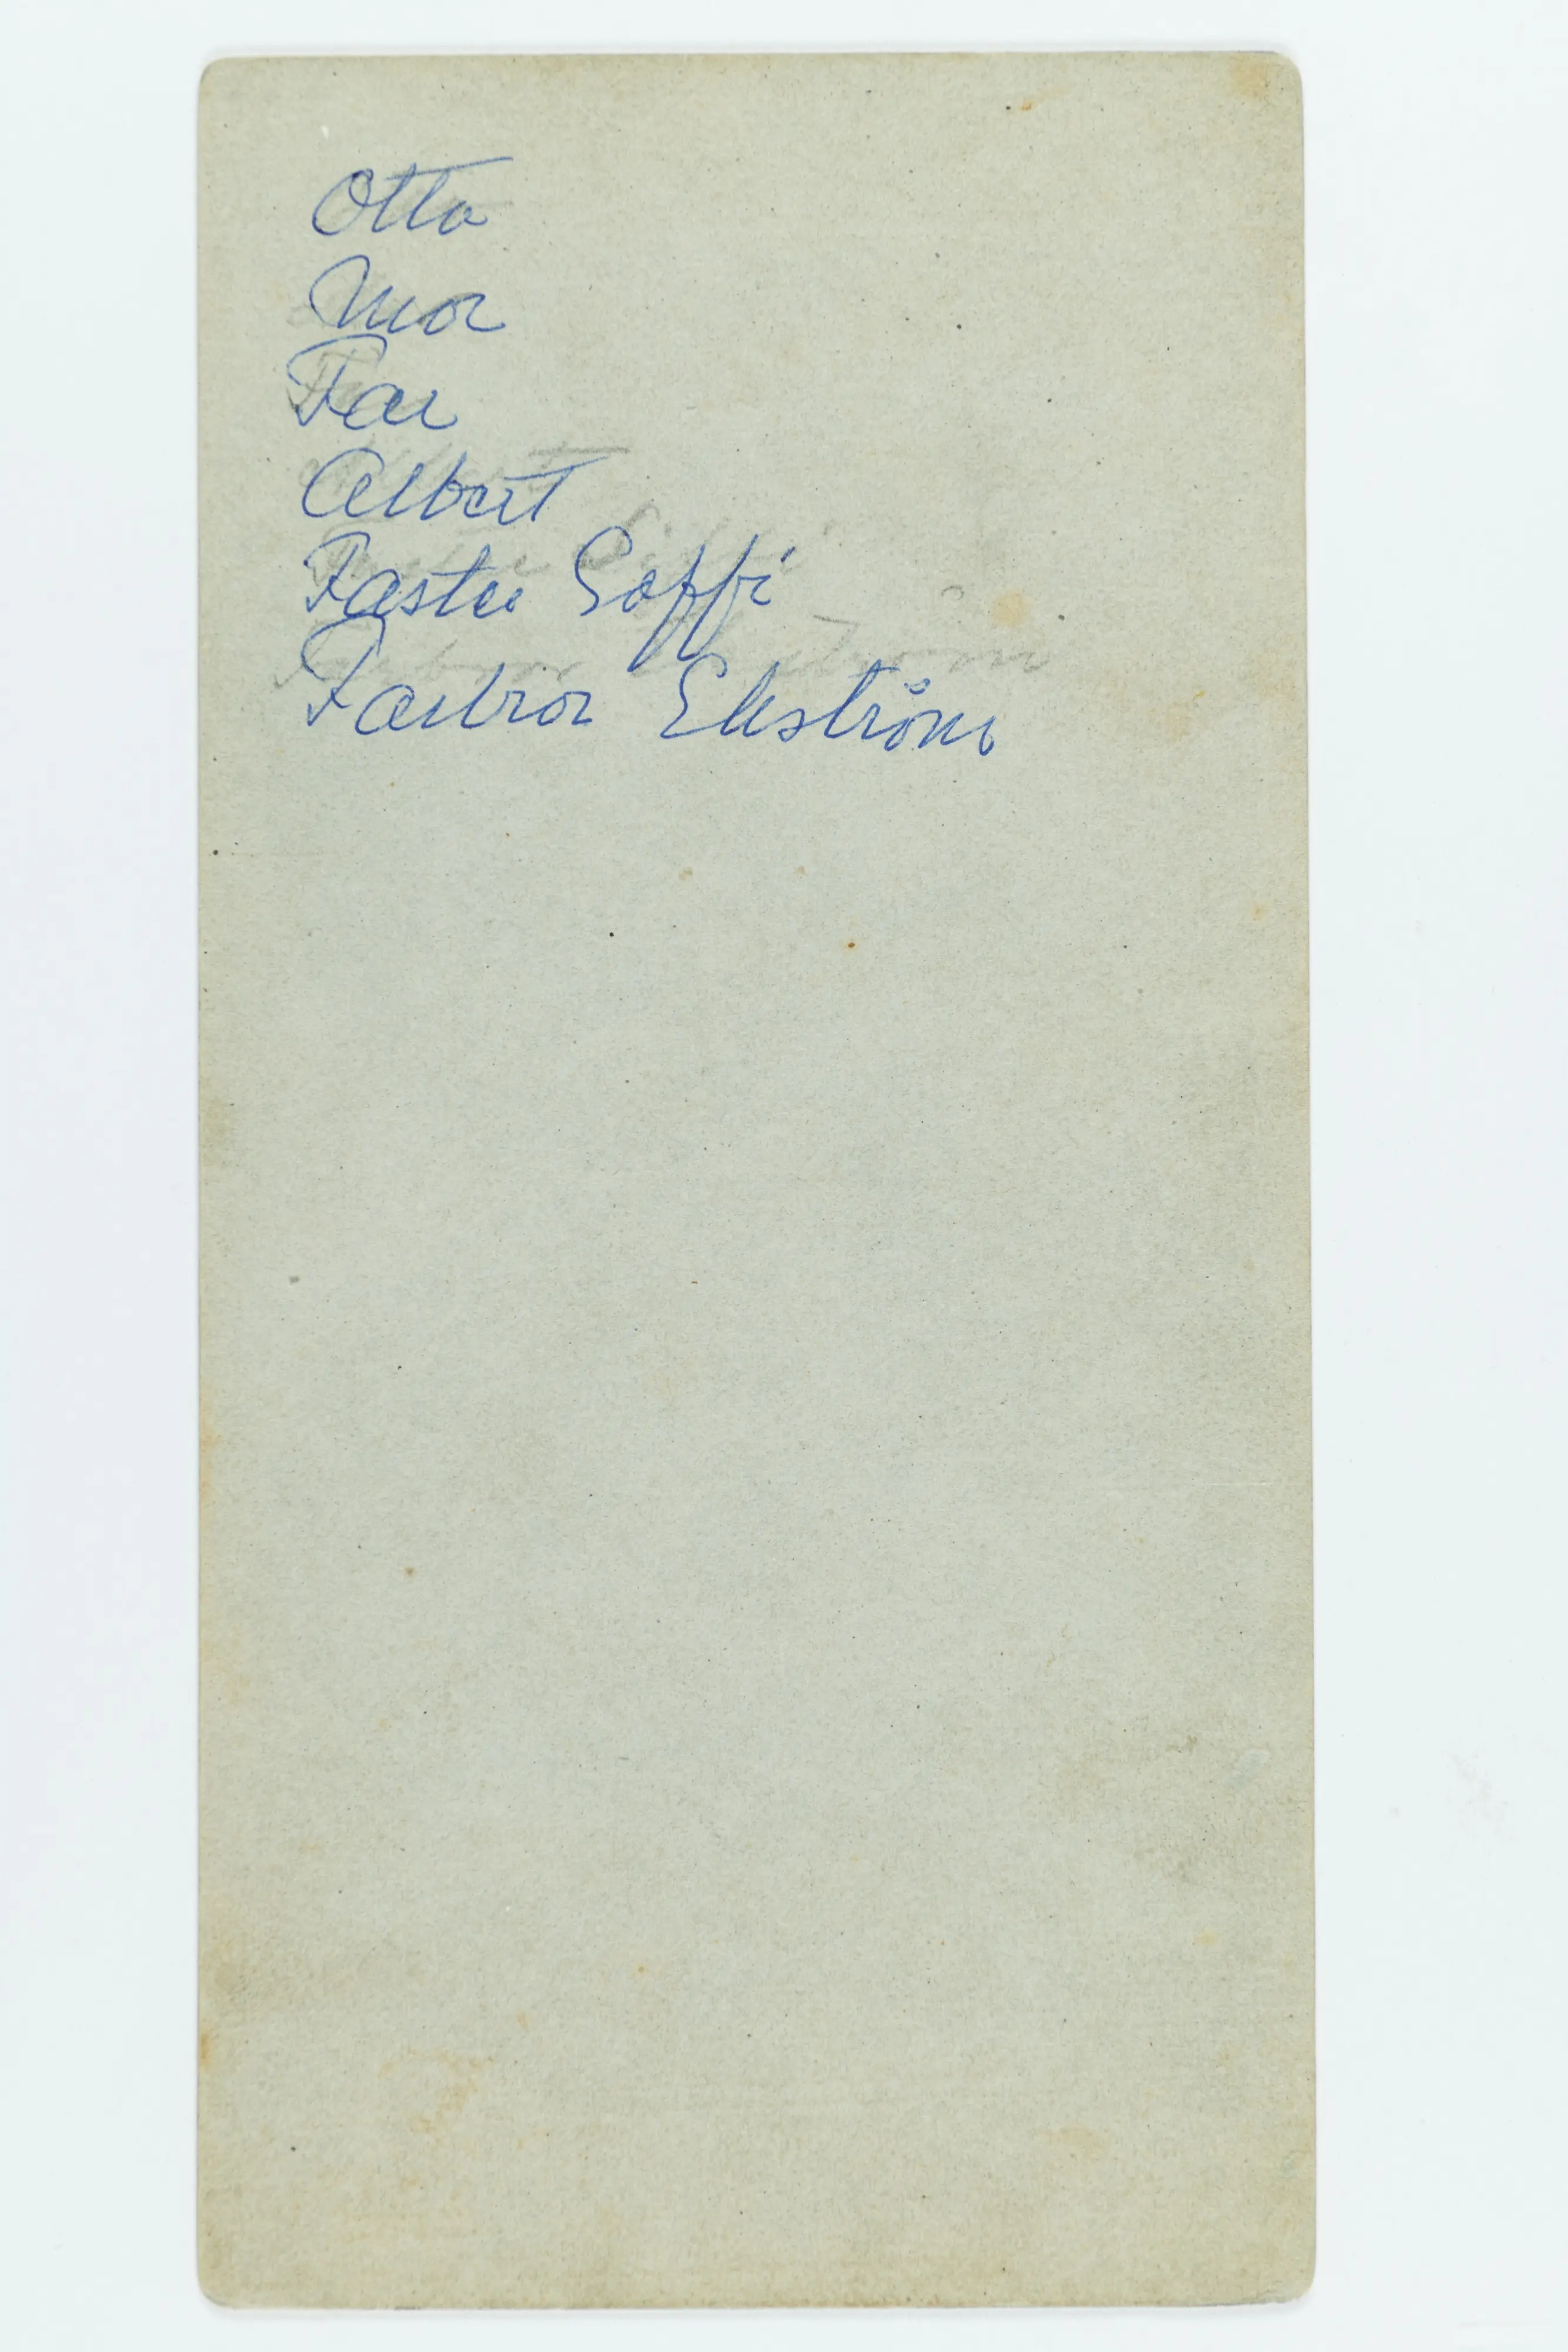 Otto
Mor
Far
Albert
Faster Soffi
Farbror Ekström